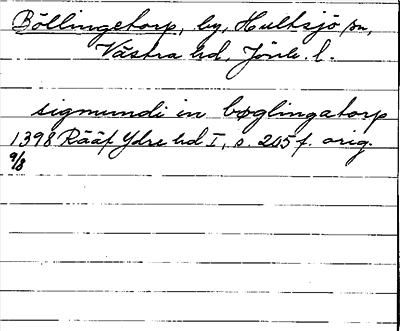 Böllingetorp, by, Hultsjö sn,
Västra hd, Jönk. l.
sigmundi in bøglingatorp
1398 Rääf Ydre hd I, s. 245 f. orig.
9/8